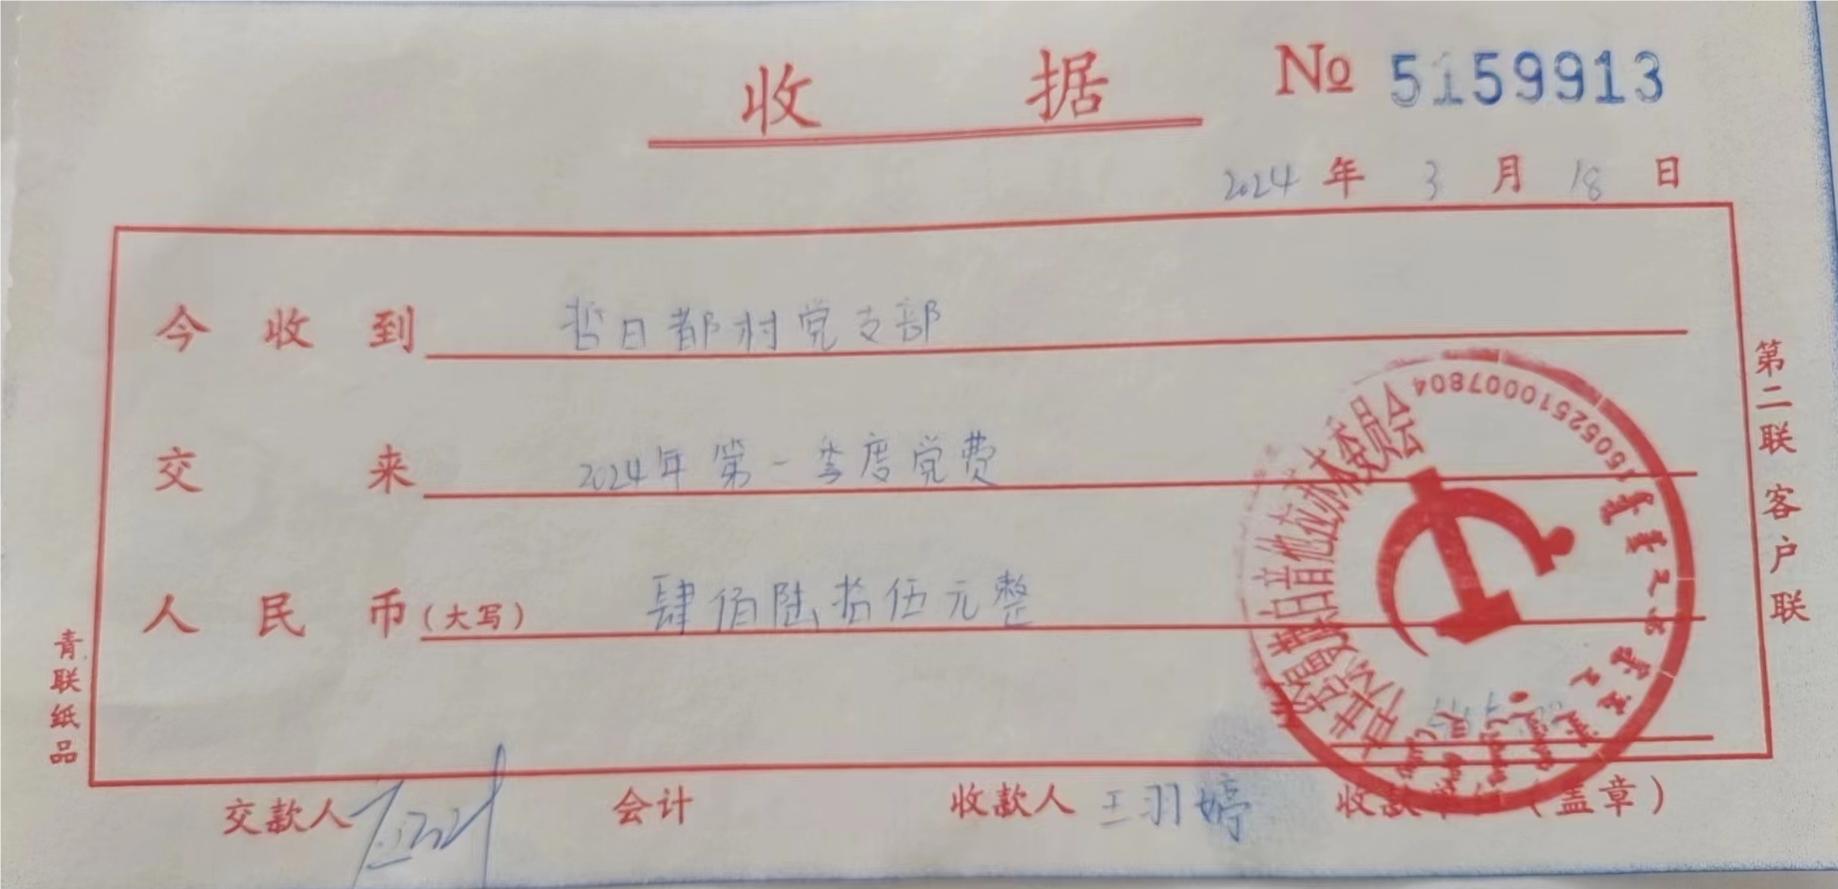 收 据 № 5159913
2024 年 3 月 18 日
今 收 到 哲日都村党支部
交 来 2024年第一季度党费
人 民 币(大写) 肆佰陆拾伍元整
交款人 会计 收款人 王羽婷 收款单位(盖章)
第二联 客户联
青联纸品
15052510007804